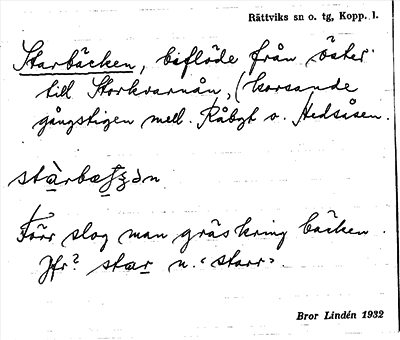 Rättviks sn o. tg, Kopp. l.
Starbäcken, biflöde från öster
till Storkvarnån, (korsande
gångstigen mell. Råbyt o. Hedsåsen.
Förr slog man gräs kring bäcken.
Jfr? star n. "starr"
Bror Lindén 1932